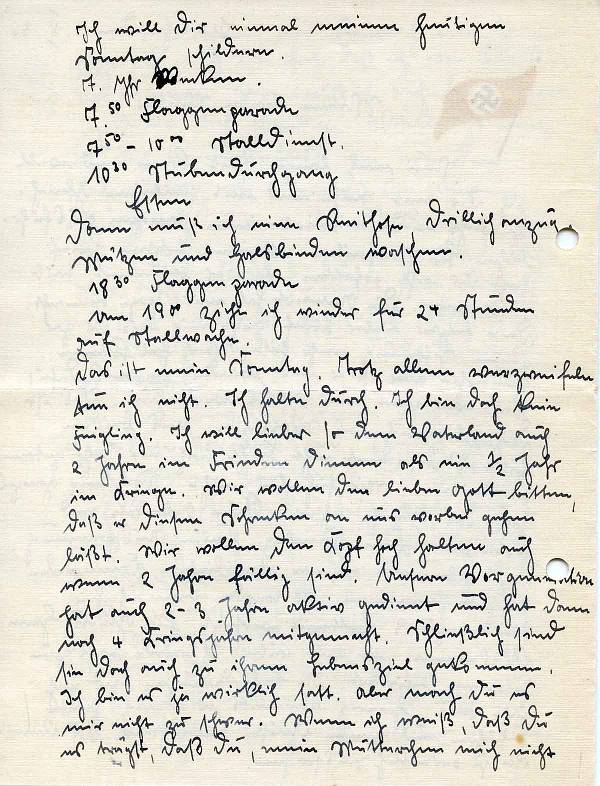 Ich will Dir einmal meinen heutigen
Sonntag schildern.
7. Uhr Wecken.
7.50 Flaggenparade
7.50 – 10.00 Stalldienst.
10.30 Stubendurchgang
Essen
Dann muß ich eine Reithose, Drillichanzug,
Mützen und Halsbinden waschen.
18.30 Flaggenparade
um 19.00 ziehe ich wieder für 24 Stunden
auf Stallwache.
Das ist mein Sonntag. Trotz allem verzweifeln
tuu ich nicht. Ich halte durch. Ich bin doch kein
Feigling. Ich will lieber so dem Vaterland auch
2 Jahre im Frieden dienen als ein 1/2 Jahr
im Kriege. Wir wollen den lieben Gott bitten,
daß er diesen Schrecken an uns vorbei gehen
läßt. Wir wollen den Kopf hoch halten auch
wenn 2 Jahre fällig sind. Unsere Vorgeneration
hat auch 2–3 Jahre aktiv gedient und hat dann
noch 4 Kriegsjahre mitgemacht. Schließlich sind
sie doch auch zu ihrem Lebensziel gekommen.
Ich bin es ja wirklich satt. aber mach Du es
mir nicht zu schwer. Wenn ich weiß, daß Du
es trägst, daß Du, mein Mutterchen mich nicht